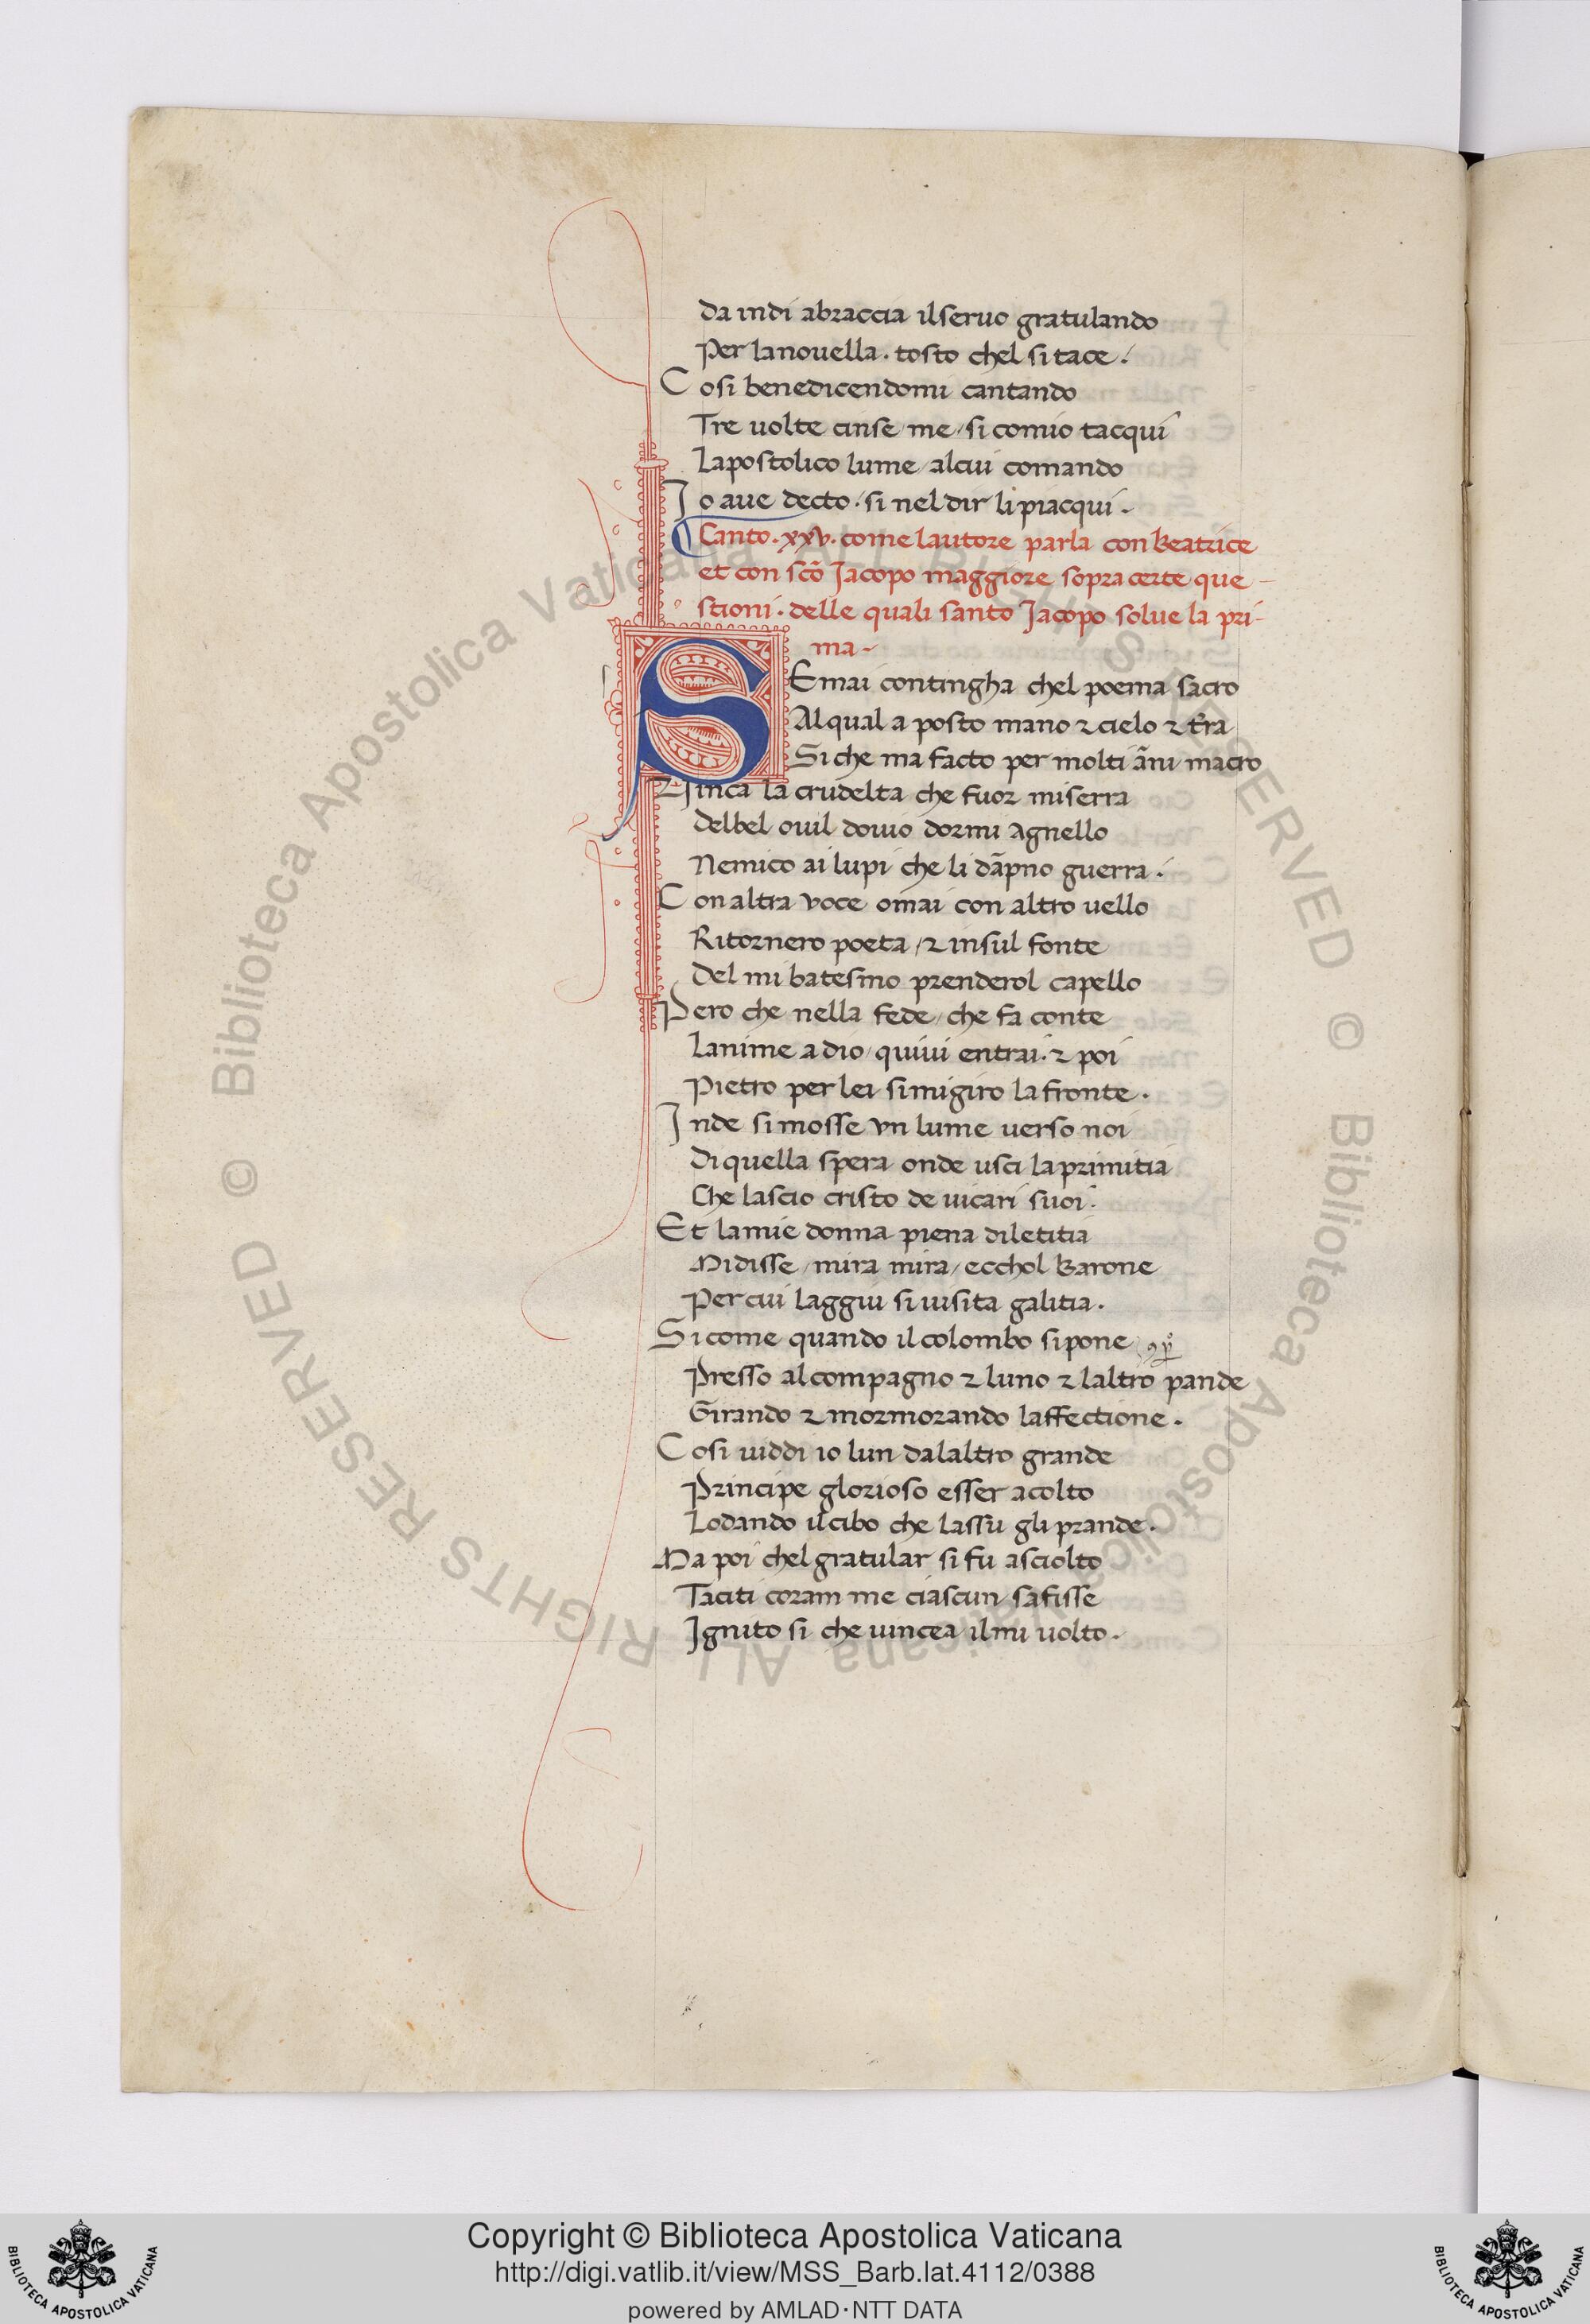 da indi abraccia ilseruo gratulando
Per lanouella. tosto chel si tace.
Cosi benedicendomi cantando
Tre uolte cinse me si comio tacqui
Lapostolico lume alcui comando
Io aue decto. si nel dir li piacqui.
Canto. xxv. come lautore parla con beatrice
et con scō Jacopo maggiore sopra certe que-
stioni. delle quali santo Jacopo solue la pri-
ma-
SEmai contingha chel poema sacro
Alqual a posto mano ⁊ cielo ⁊ t̄ra
Siche ma facto per molti ān̄i macro
Vinca la crudelta che fuor miserra
delbel ouil douio dormi agnello
Nemico ai lupi che li dāpno guerra.
Con altra voce omai con altro uello
Ritornero poeta / ⁊ insul fonte
Del mi batesmo prenderol capello
Pero che nella fede / che fa conte
Lanime a dio / quiui entrai. ⁊ poi
Pietro per lei simigiro la fronte.
Inde simosse vn lume uerso noi
Di quella spera onde usci laprimitia
Che lascio cristo de uicari suoi.
Et lamie donna piena diletitia
Midisse / mira mira / ecchol barone
Per cui laggiu si uisita galitia.
Sicome quando il colombo sipone
Presso alcompagno ⁊ luno ⁊ laltro pande
Girando ⁊ mormorando laffectione.
Cosi uiddi io lun dalaltro grande
Principe glorioso esser acolto
Lodando ilcibo che lassu gli prande.
Ma poi chel gratular si fu asciolto
Taciti coram me ciascun safisse
Ignito si che uincea ilmi uolto.
© Biblioteca Apostolica Vaticana ALL RIGHTS RESERVED
© Biblioteca Apostolica Vaticana ALL RIGHTS RESERVED
Copyright © Biblioteca Apostolica Vaticana
http://digi.vatlib.it/view/MSS_Barb.lat.4112/0388
powered by AMLAD·NTT DATA
BIBLIOTECA APOSTOLICA VATICANA
BIBLIOTECA APOSTOLICA VATICANA